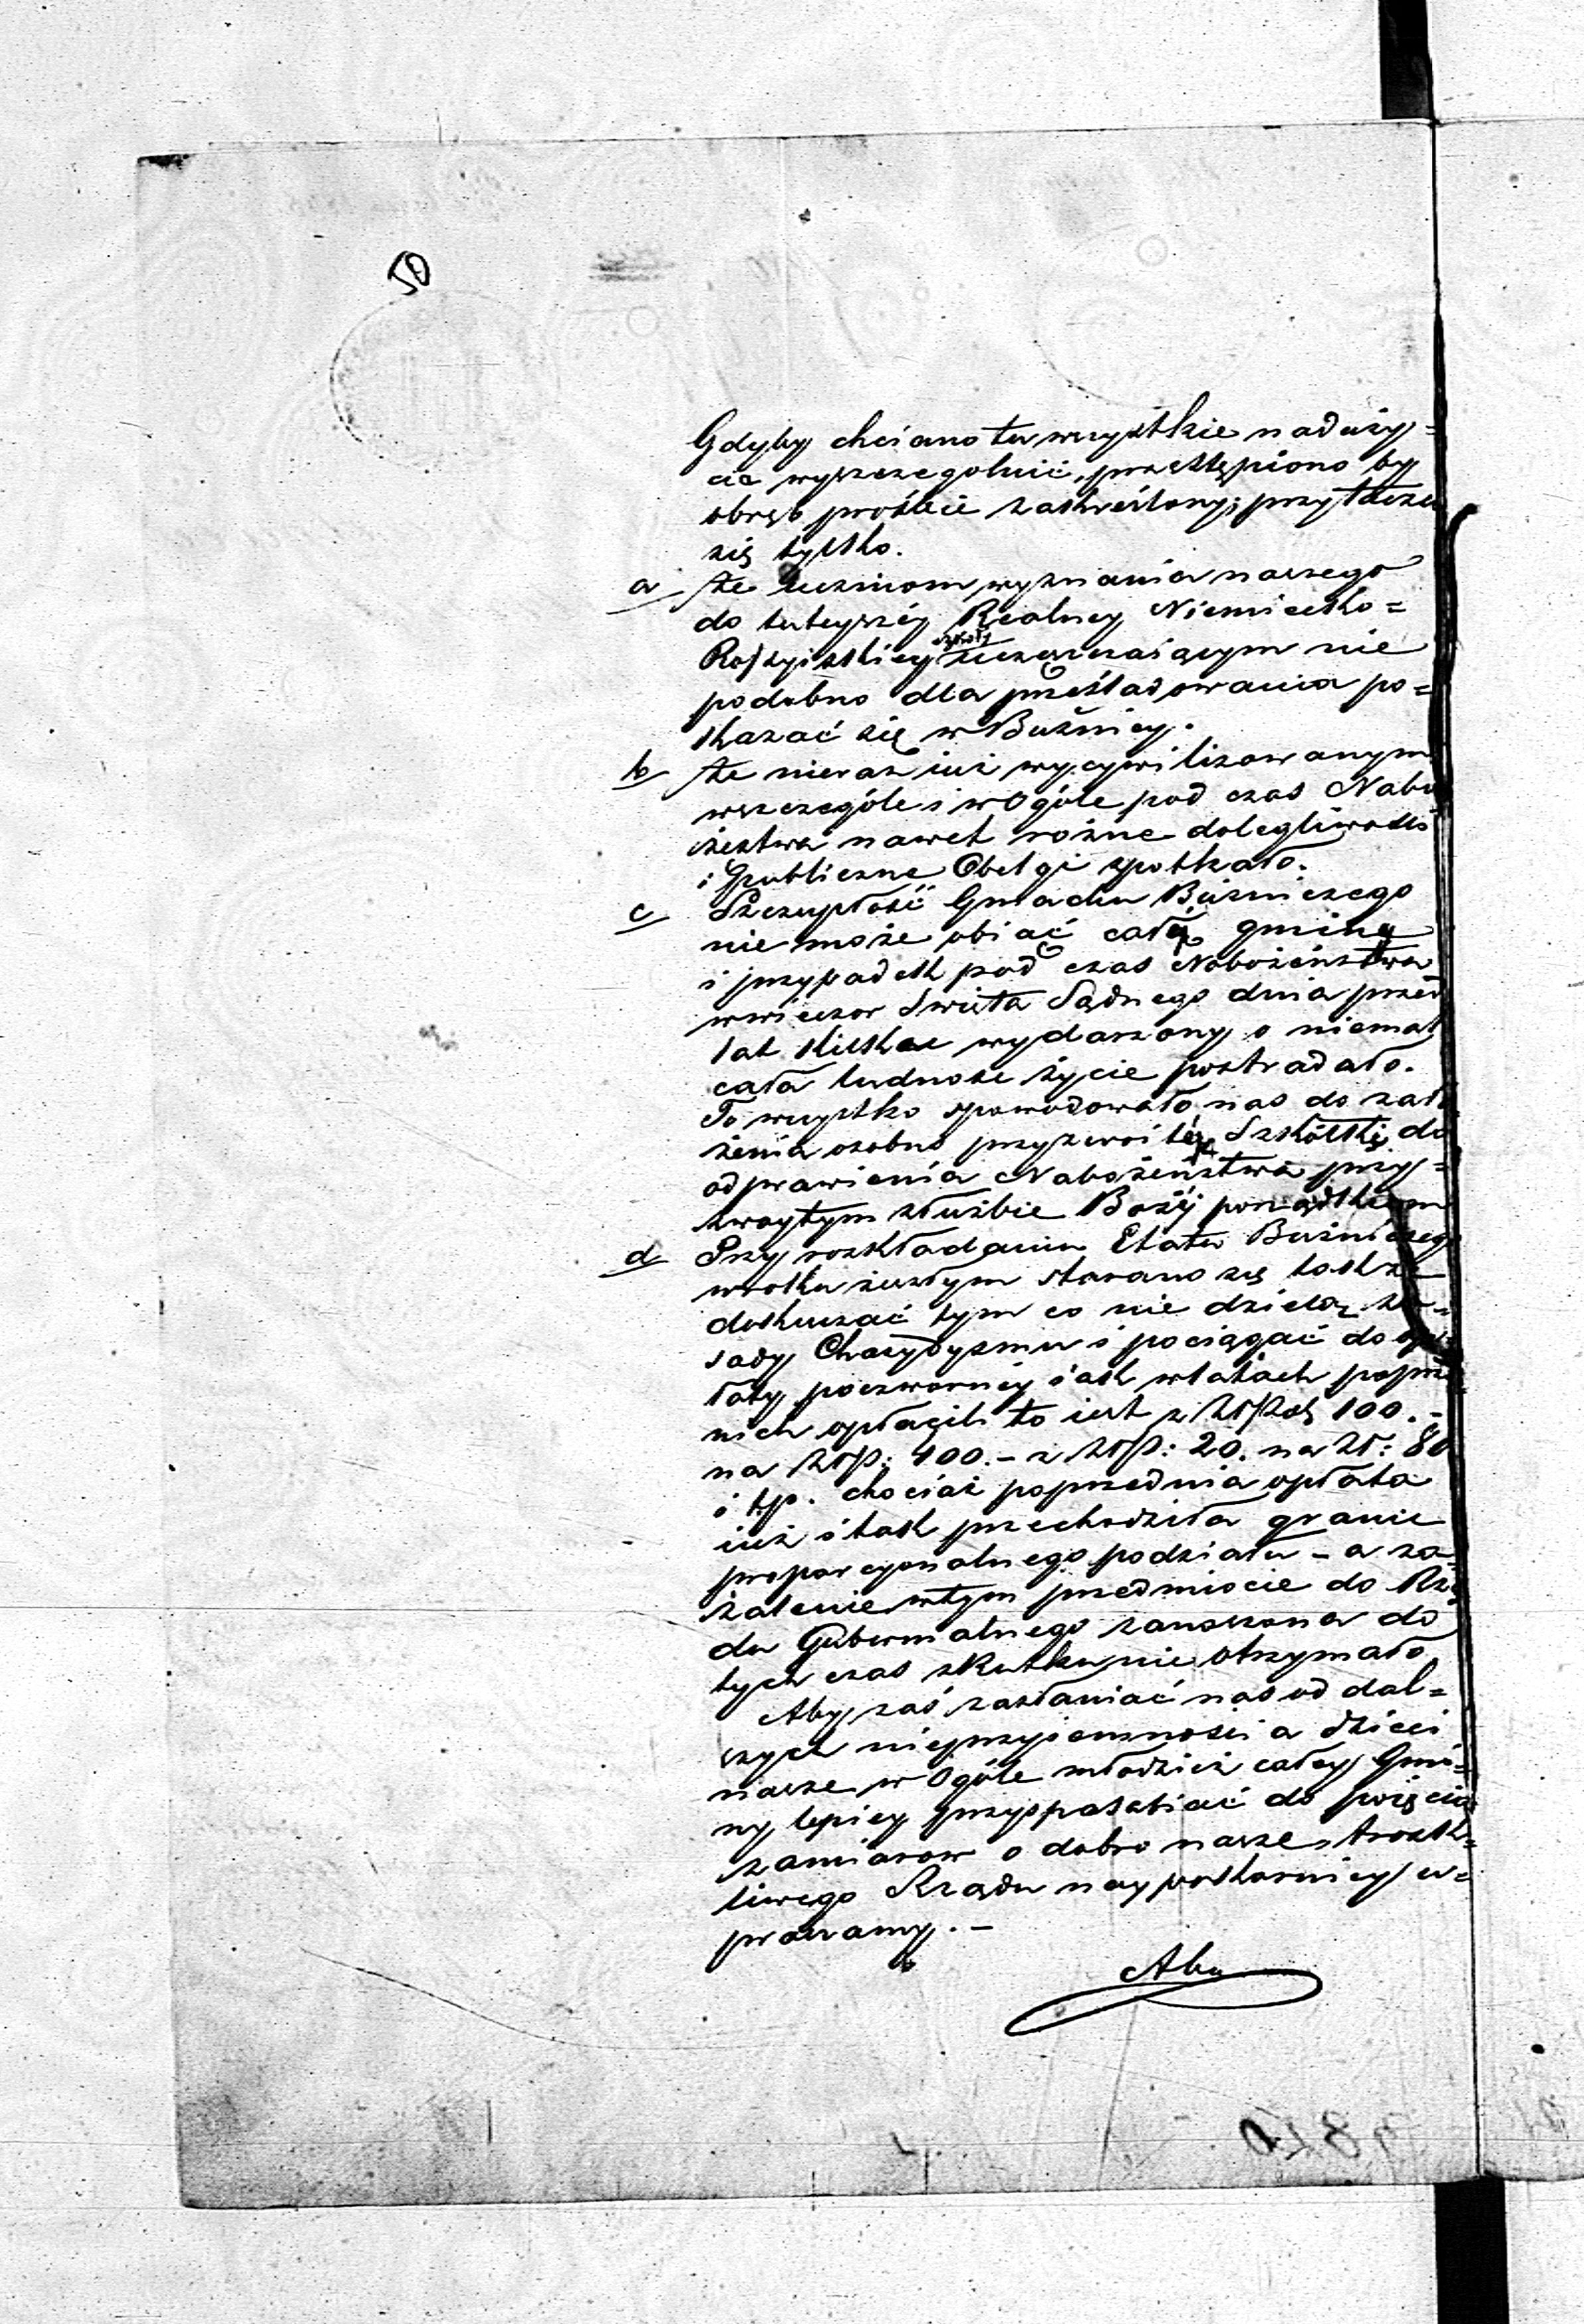 50
Gdyby chciano tu wszystkie naduży=
cia wyszczegolnić, przestąpiono by
obręb prośbie zaskreślony; przytacza
się tylko.
a że uczniom wyznania naszego
do tuteyszéy Realney Niemiecko=
szkoły
Rossyiskiey uczęszczaiącym nie
podobno dla prześladowania po=
kazać się w Bużnicy.
b że nieraz iuż wycywilizowanym
wszczególe i wogóle pod czas Nabo
żestwa nawet rożne dolegliwości
i Publiczne Obelgi spotkało.
c Szczupłość Gmachu Bużniczego
nie może obiąć całą gminę
i przypadek pod czas Nabożeństwa
wwieczor Swięta Sądnego dnia przed
lat kilku wydarzony, o niemal
cała ludnosc życie postradało.
To wszystko spowodowało nas do zało
żenia osobno przyzwoitéy Szkółki do
odprawienia Nabożeństwa przy=
zwoytym służbie Bożéy porządkiem
d Przy rozkładaniu Etatu Bużniczego
wroku zeszłym starano się także
dokuczać tym co nie dzielą za=
sady Chasydyzmu i pociągać do op
łaty poczworney iak wlatach poprze
nich opłacili to iest z Złp 100.-
na Złp: 400.- z Złp: 20. na Zł: 80
i t.p. chociaż poprzednia opłata
iuż i tak przechodziła granic
proporcyonalnego podziału - a za=
żalenie wtym przedmiocie do Rzą
du Gubernialnego zanoszona do
tych czas skutku nie otrzymało
Aby zaś zasłaniać nas od dal=
szych nieprzyiemności a dzieci
nasze w Ogóle młodzież całey Gmi=
ny lepiey przysposabiać do poięcia
zamiarow o dobro nasze trosk=
liwego Rządu naypokorniey u=
praszamy. -
Aby